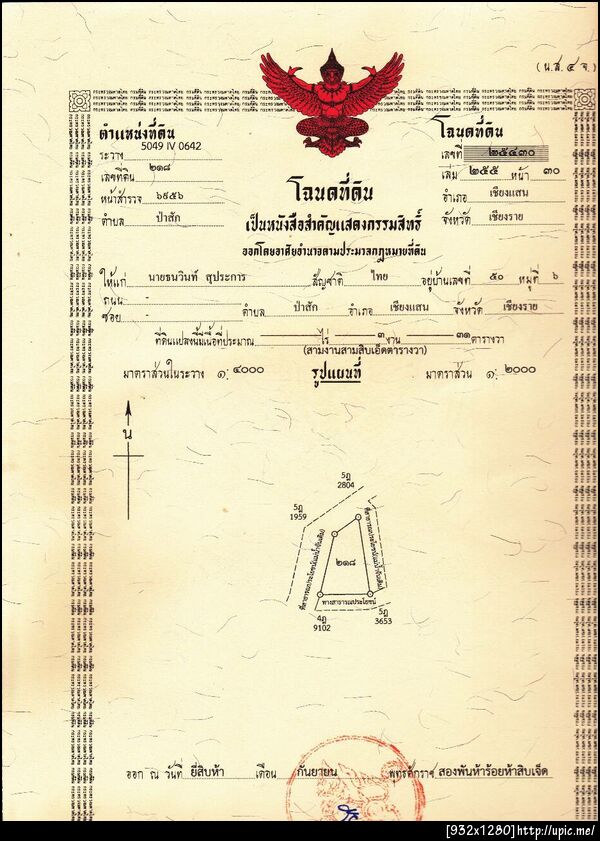 (น.ส. ๔ จ.)
ตำแหน่งที่ดิน
ระวาง 5049 IV 0642
เลขที่ดิน ๒๑๘
หน้าสำรวจ ๖๙๕๖
ตำบล ป่าสัก
โฉนดที่ดิน
เลขที่ ๒๕๔๓๐
เล่ม ๒๕๕ หน้า ๓๐
อำเภอ เชียงแสน
จังหวัด เชียงราย
โฉนดที่ดิน
เป็นหนังสือสำคัญแสดงกรรมสิทธิ์
ออกโดยอาศัยอำนาจตามประมวลกฎหมายที่ดิน
ให้แก่ นายธนวินท์ สุประการ สัญชาติ ไทย อยู่บ้านเลขที่ ๕๐ หมู่ที่ ๖
ถนน -
ซอย - ตำบล ป่าสัก อำเภอ เชียงแสน จังหวัด เชียงราย
ที่ดินแปลงนี้มีเนื้อที่ประมาณ - ไร่ ๓ งาน ๓๑ ตารางวา
(สามงานสามสิบเอ็ดตารางวา)
มาตราส่วนในระวาง ๑: ๔๐๐๐ รูปแผนที่ มาตราส่วน ๑: ๒๐๐๐
น
5ฎ
2804
5ฎ
1959
๒๑๘
ทางสาธารณประโยชน์
4ฎ
9102
5ฎ
3653
ออก ณ วันที่ ยี่สิบห้า เดือน กันยายน พุทธศักราช สองพันห้าร้อยห้าสิบเจ็ด
[932x1280]http://upic.me/